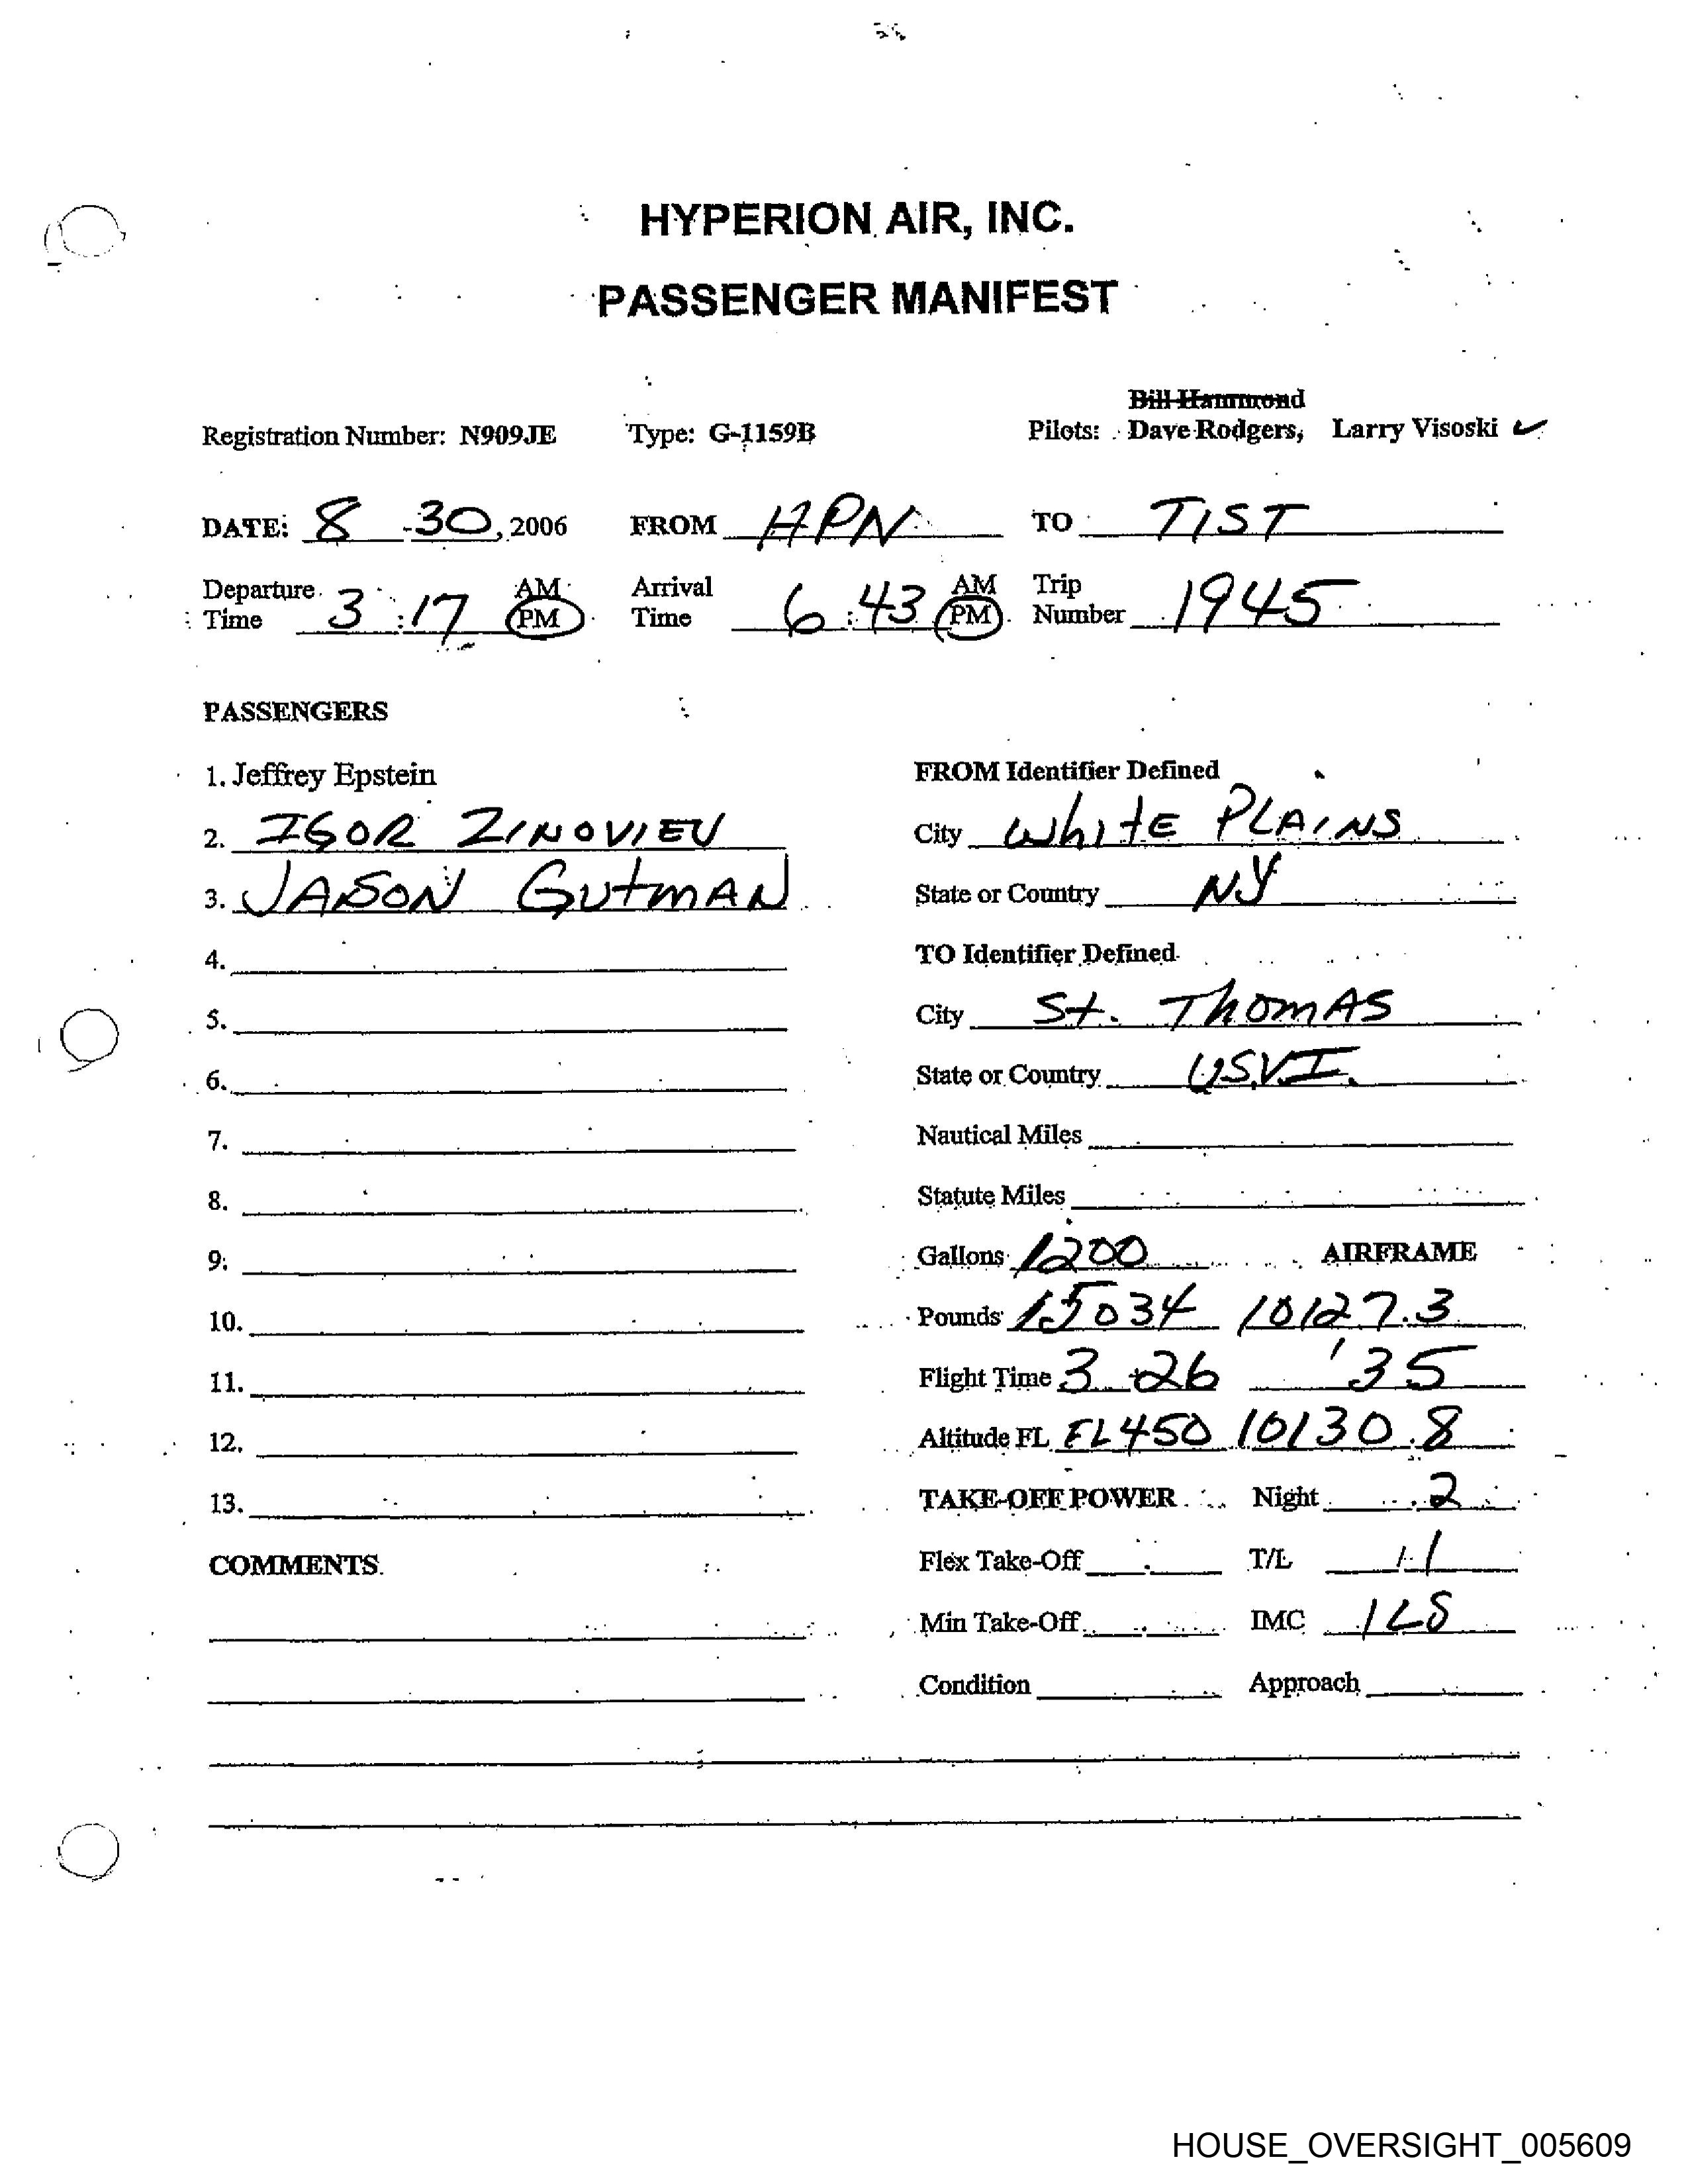 HYPERION AIR, INC.
PASSENGER MANIFEST
Bill Hammond
Registration Number: N909JE Type: G-1159B Pilots: Dave Rodgers, Larry Visoski ✓
DATE: 8 -30, 2006 FROM HPN TO TIST
Departure Time 3:17 AM PM Arrival Time 6:43 AM PM Trip Number 1945
PASSENGERS
1. Jeffrey Epstein FROM Identifier Defined
2. IGOR ZINOVIEV City WhitE PLAINS
3. JASON GUtmAN State or Country NY
4. TO Identifier Defined
5. City St. ThomAS
6. State or Country USVI.
7. Nautical Miles
8. Statute Miles
9. Gallons 1200 AIRFRAME
10. Pounds 15034 10127.3
11. Flight Time 3+26 '35
12. Altitude FL FL450 10130.8
13. TAKE-OFF POWER Night .2
COMMENTS Flex Take-Off T/L 1/1
Min Take-Off IMC ILS
Condition Approach
HOUSE_OVERSIGHT_005609